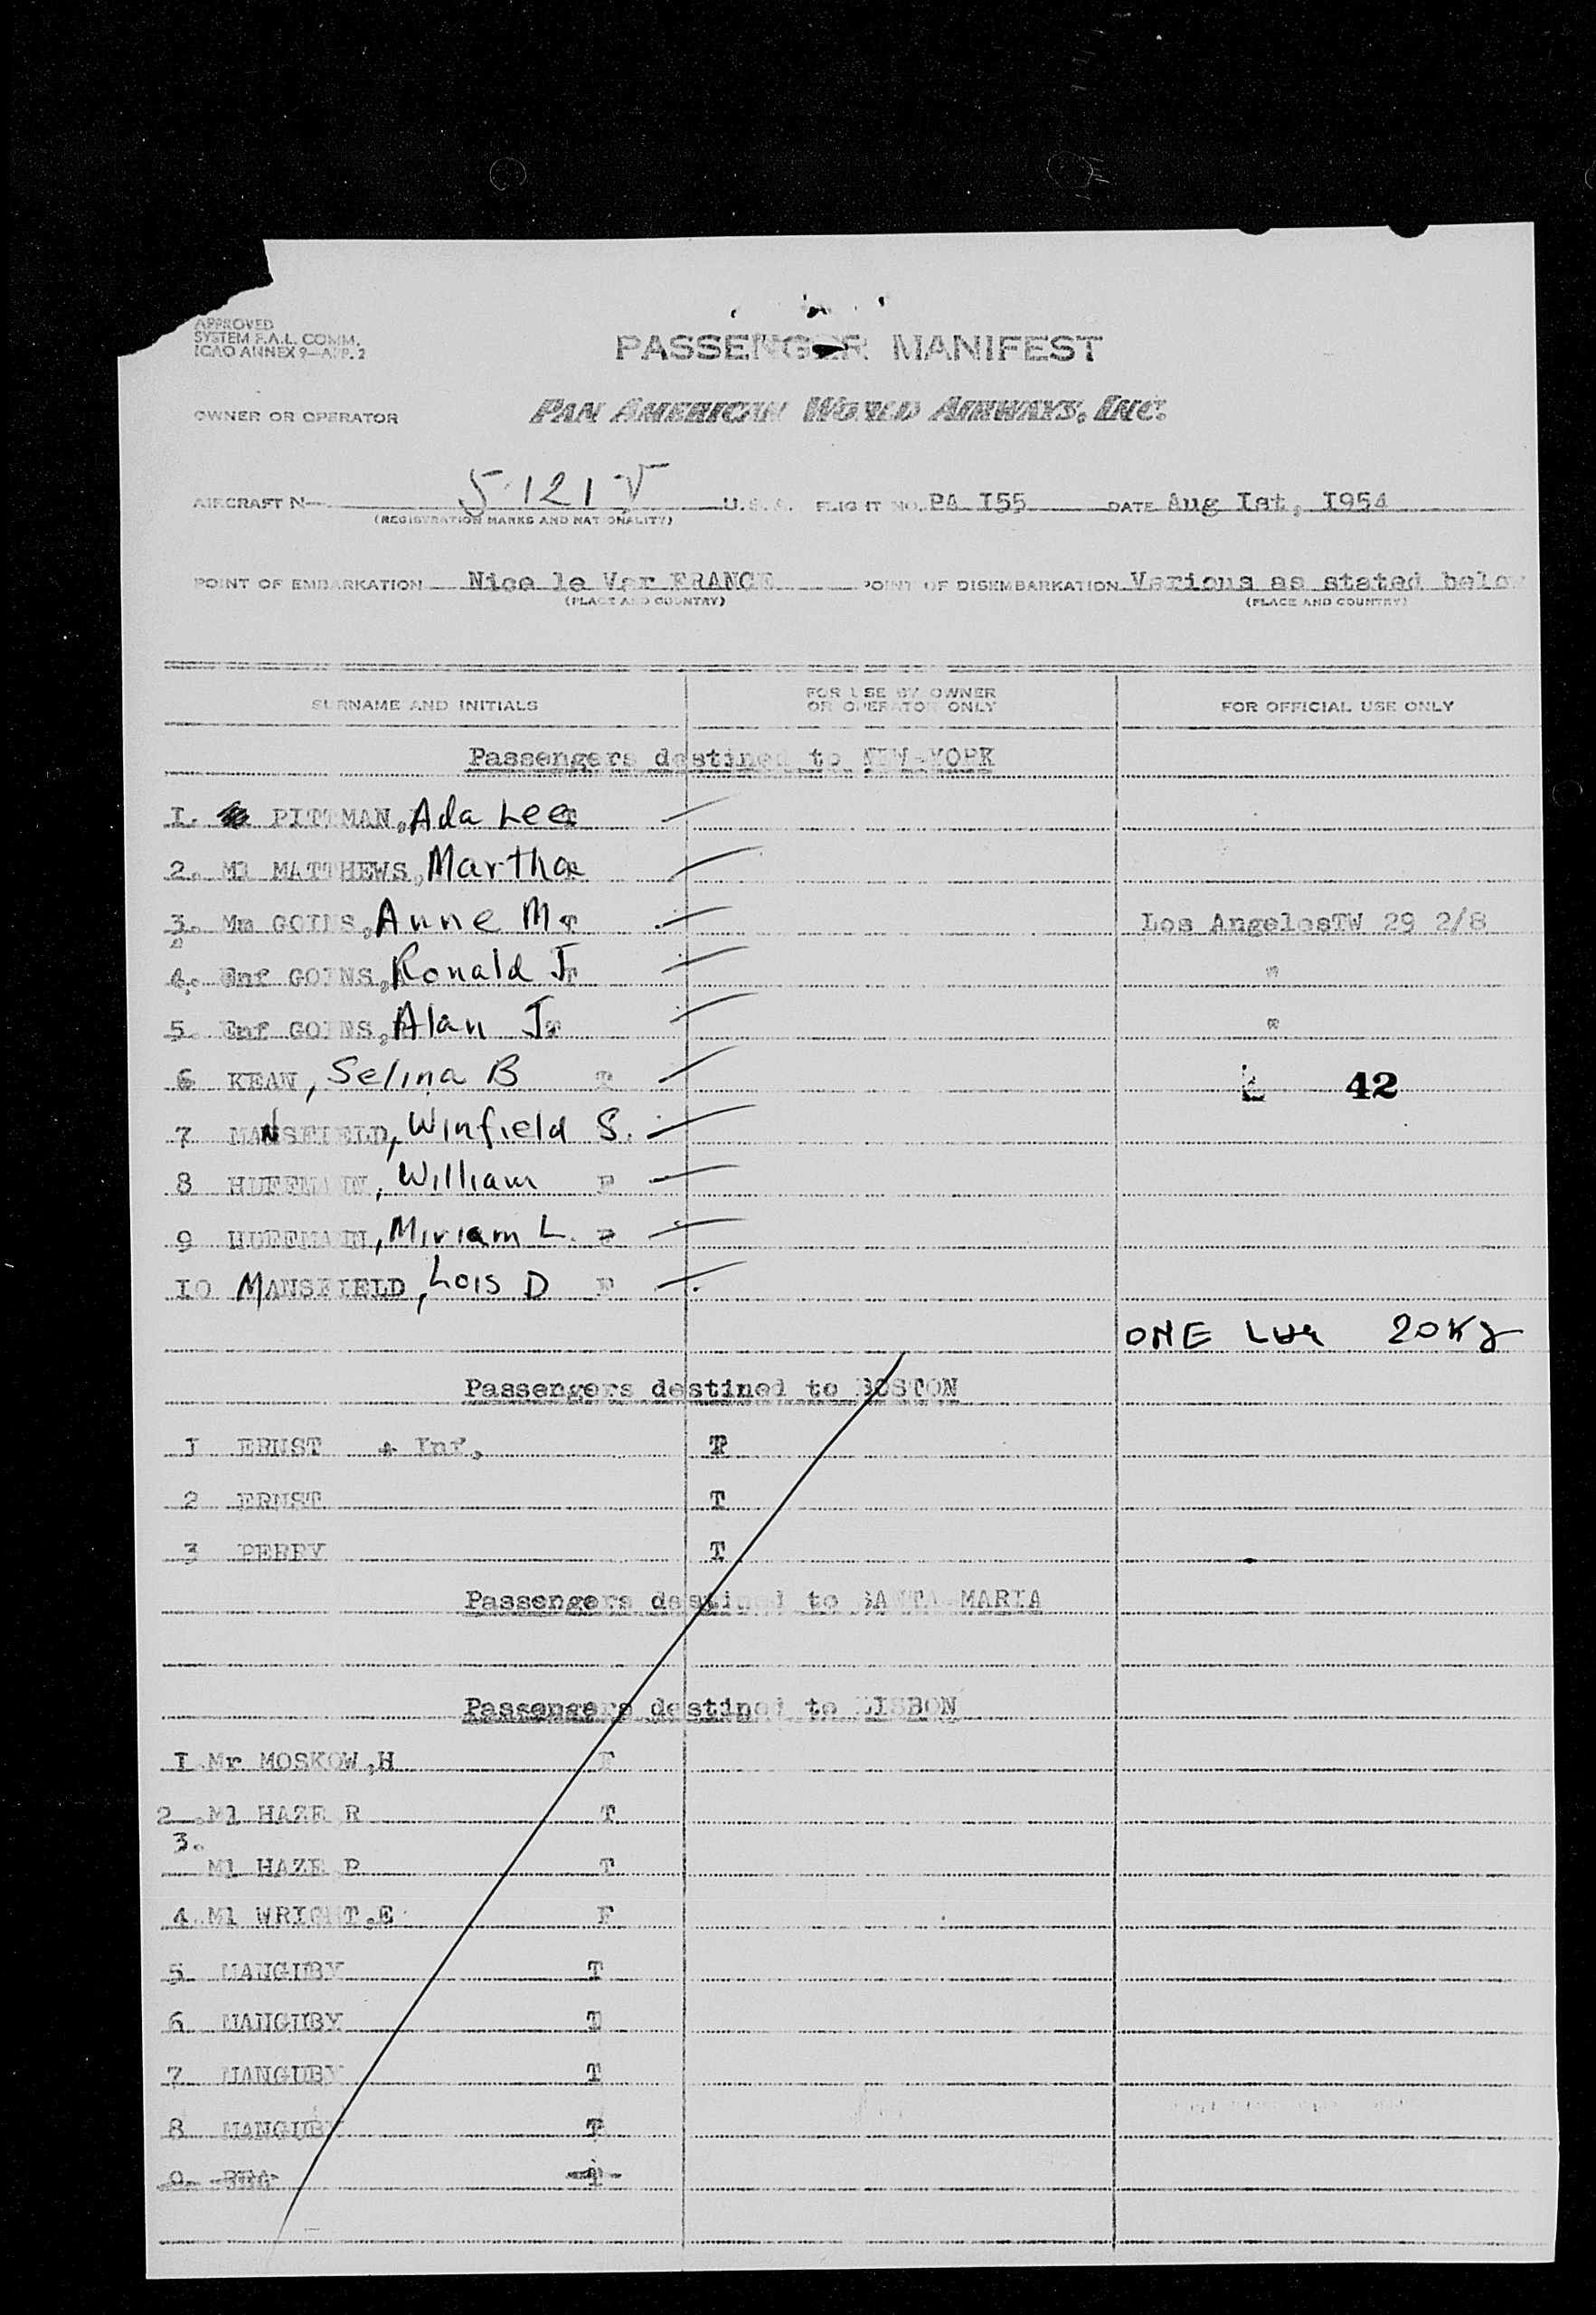 APPROVED
SYSTEM F.A.L. COMM.
ICAO ANNEX 9—APP. 2
PASSENGER MANIFEST
OWNER OR OPERATOR PAN AMERICAN WORLD AIRWAYS, INC.
AIRCRAFT N— 5121V U.S.A. FLIGHT NO. PA I55 DATE Aug Ist, I954
(REGISTRATION MARKS AND NATIONALITY)
POINT OF EMBARKATION Nice le Var FRANCE POINT OF DISEMBARKATION Various as stated below
(PLACE AND COUNTRY) (PLACE AND COUNTRY)
SURNAME AND INITIALS FOR USE BY OWNER OR OPERATOR ONLY FOR OFFICIAL USE ONLY
Passengers destined to NEW-YORK
I. PITTMAN, Ada Lee
2. Ml MATTHEWS, Martha
3. Mm GOINS, Anne M T Los AngelesTW 29 2/8
4. Enf GOINS, Ronald J T "
5. Enf GOINS, Alan J T "
6 KEAN, Selina B T 42
7 MANSFIELD, Winfield S.
8 HUFFMANN, William F
9 HUFFMANN, Miriam L. F
IO MANSFIELD, Lois D F
ONE 20Kg
Passengers destined to BOSTON
I ERNST + Inf, T
2 ERNST T
3 PERRY T
Passengers destined to SANTA-MARIA
Passengers destined to LISBON
I.Mr MOSKOW,H T
2 .Ml HAZE R T
3.
Ml HAZE P T
4 Ml WRIGHT.E F
5 MANGUBY T
6 MANGUBY T
7 MANGUBY T
8 MANGUBY T
9. T